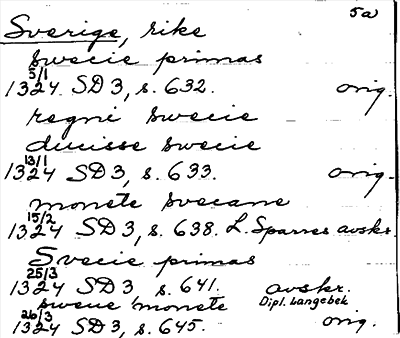 5a
Sverige, rike
swecie primas
5/1
1324 SD 3, s. 632. orig.
regni swecie
ducisse swecie
13/1
1324 SD 3, s. 633. orig.
monete swecane
15/2
1324 SD 3, s. 638. L. Sparres avskr.
Svecie primas
25/3
1324 SD 3 s. 641. avskr.
swecie monete Dipl. Langebek
26/3
1324 SD 3, s. 645. orig.